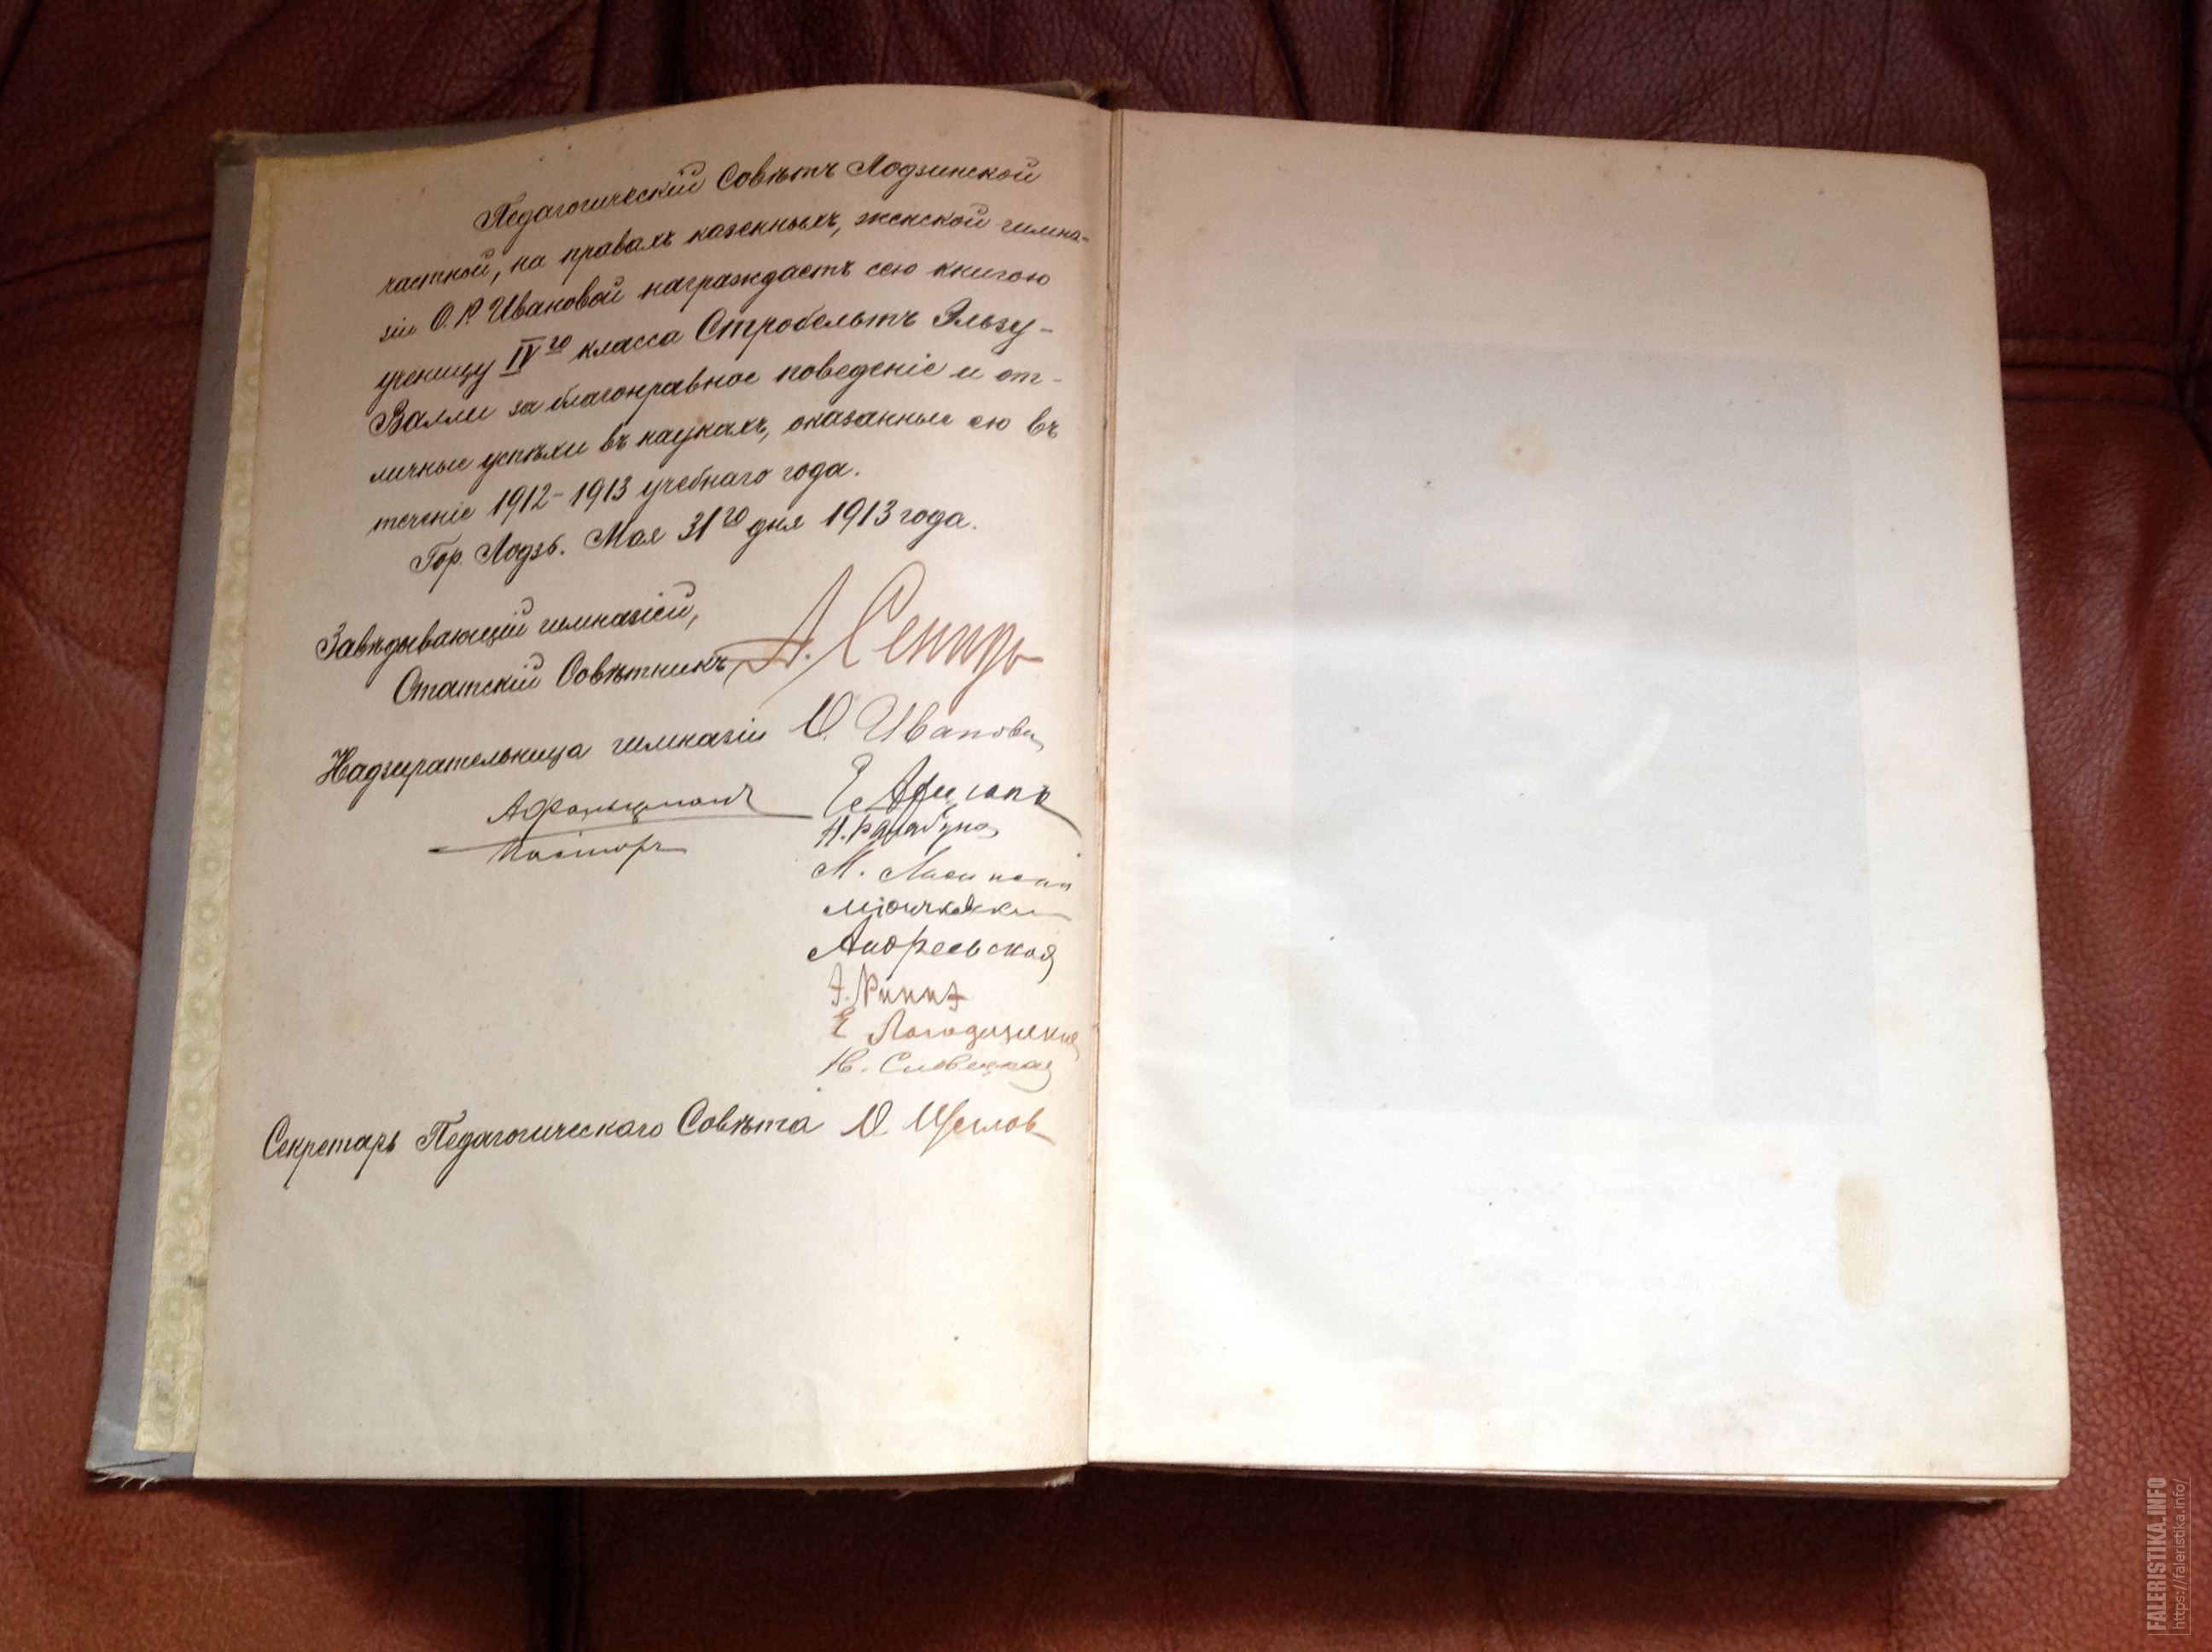 Педагогическій Совѣтъ Лодзинской
частной, на правахъ казенныхъ, женской гимна-
зіи О. Р. Ивановой награждаетъ сею книгою
ученицу IVго класса Стробельтъ Эльзу-
Валли за благонравное поведеніе и от-
личные успѣхи въ наукахъ, оказанные ею въ
теченіе 1912-1913 учебнаго года.
Гор. Лодзь. Мая 31го дня 1913 года.
Завѣдывающій гимназіей,
Статскій Совѣтникъ А.
Надзирательница гимназіи О. Иванова
Пасторъ
М.
Андреевская
Э.
Е.
Н.
Секретарь Педагогическаго Совѣта О.
FALERISTIKA.INFO
https://faleristika.info/